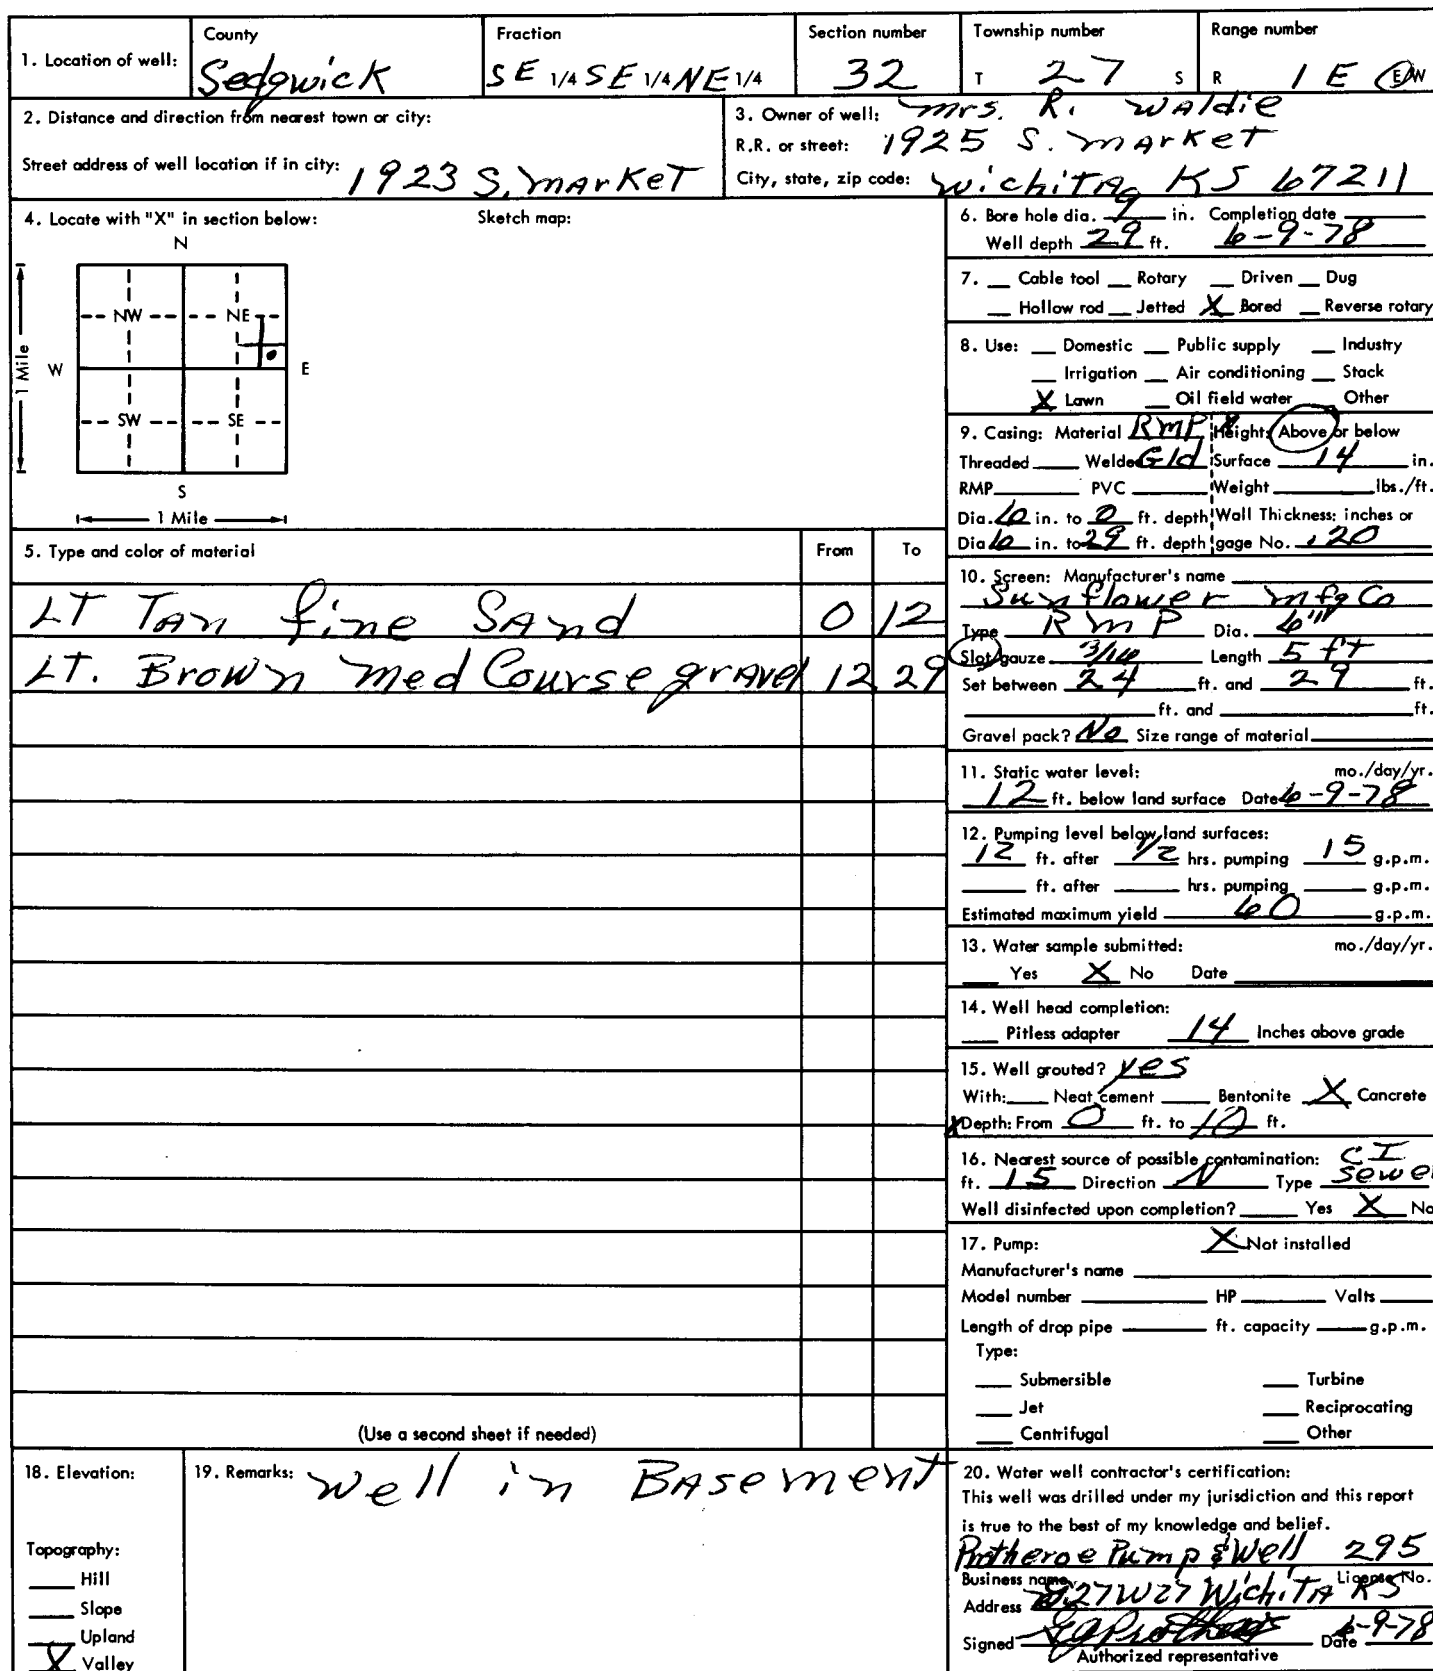 1. Location of well: County Sedgwick Fraction SE 1/4 SE 1/4 NE 1/4 Section number 32 Township number T 27 S Range number R 1 E E/W
2. Distance and direction from nearest town or city:
Street address of well location if in city: 1923 S. Market
3. Owner of well: Mrs. R. Waldie
R.R. or street: 1925 S. Market
City, state, zip code: Wichita KS 67211
4. Locate with "X" in section below: Sketch map:
N
NW NE
W E
1 Mile
SW SE
S
1 Mile
5. Type and color of material From To
LT Tan fine Sand 0 12
LT. Brown med Course gravel 12 29
(Use a second sheet if needed)
6. Bore hole dia. 9 in. Completion date
Well depth 29 ft. 6-9-78
7. Cable tool Rotary Driven Dug
Hollow rod Jetted X Bored Reverse rotary
8. Use: Domestic Public supply Industry
Irrigation Air conditioning Stock
X Lawn Oil field water Other
9. Casing: Material RMP Height: Above or below
Threaded Welded Gld Surface 14 in.
RMP PVC Weight lbs./ft.
Dia. 6 in. to 0 ft. depth Wall Thickness: inches or
Dia 6 in. to 29 ft. depth gage No. .120
10. Screen: Manufacturer's name
Sunflower mfg Co
Type RMP Dia. 6"
Slot/gauze 3/16 Length 5 ft
Set between 24 ft. and 29 ft.
ft. and ft.
Gravel pack? No Size range of material
11. Static water level: mo./day/yr.
12 ft. below land surface Date 6-9-78
12. Pumping level below land surfaces:
12 ft. after 1/2 hrs. pumping 15 g.p.m.
ft. after hrs. pumping g.p.m.
Estimated maximum yield 60 g.p.m.
13. Water sample submitted: mo./day/yr.
Yes X No Date
14. Well head completion:
Pitless adapter 14 Inches above grade
15. Well grouted? yes
With: Neat cement Bentonite X Concrete
X Depth: From 0 ft. to 10 ft.
16. Nearest source of possible contamination: CI
ft. 15 Direction N Type Sewer
Well disinfected upon completion? Yes X No
17. Pump: X Not installed
Manufacturer's name
Model number HP Valts
Length of drop pipe ft. capacity g.p.m.
Type:
Submersible Turbine
Jet Reciprocating
Centrifugal Other
18. Elevation:
Topography:
Hill
Slope
Upland
X Valley
19. Remarks: Well in Basement
20. Water well contractor's certification:
This well was drilled under my jurisdiction and this report
is true to the best of my knowledge and belief.
Protheroe Pump & Well 295
Business name License No.
Address W 27 Wichita KS
Signed Date 6-9-78
Authorized representative